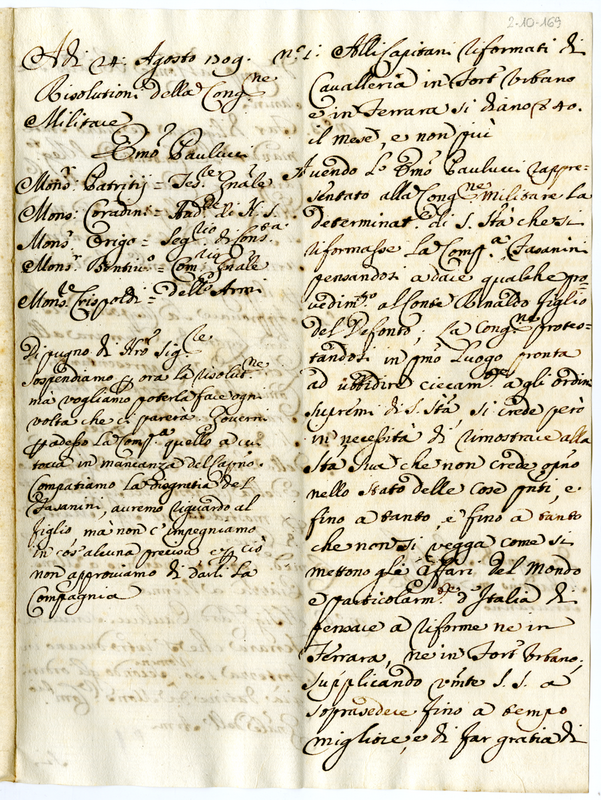 2-10-169
Adi 24. Agosto 1709.
Risolutioni della Congne
Militare
Emo Paulucci
Monsr Patritij = Tesre Gnãle
Monsr Coradini = Audre di N. S.
Monsr Origo = Segrio di Consta
Monsr Bentivo = Comrio Gnãle
Monsr Crispoldi = dell'Armi
Di pugno di Nro Sigre
Sospendiamo p ora la risolutne
mà vogliamo poterla fare ogni
volta che ci parerà. Governi
p adesso la Compa quello a cui
tocca in mancanza del Capno.
Compatiamo la disgratia del
Fasanini, avremo riguardo al
figlio mà non c'impegniamo
in cos'alcuna precisa, e p ciò
non approviamo di darli la
Compagnia
n.o 1: Alli Capitani riformati di
Cavalleria in Forte Urbano
e in Ferrara si diano 40.
il mese, e non più
Avendo l'Emo Paulucci rappre-
sentato alla Congne Militare la
determinat. di S. Stà che si
riformasse la Compa Fasanini
pensandosi a dare qualche pro-
vedimto al Conte Rinaldo figlio
del Defonto; La Congne protes-
tandosi in pmo luogo pronta
ad ubbidire ciecamte a gli ordini
supremi di S. Stà si crede però
in necessità di rimostrare alla
Stà Sua che non crede opno
nello stato delle cose pnti, e
fino a tanto, e fino a tanto
che non si vegga come si
mettono gli affari del Mondo
e particolarmte d'Italia di
pensare a riforme ne in
Ferrara, ne in Forte Urbano,
supplicando vnte S. S. a
soprasedere fino a tempo
migliore, e di far gratia di